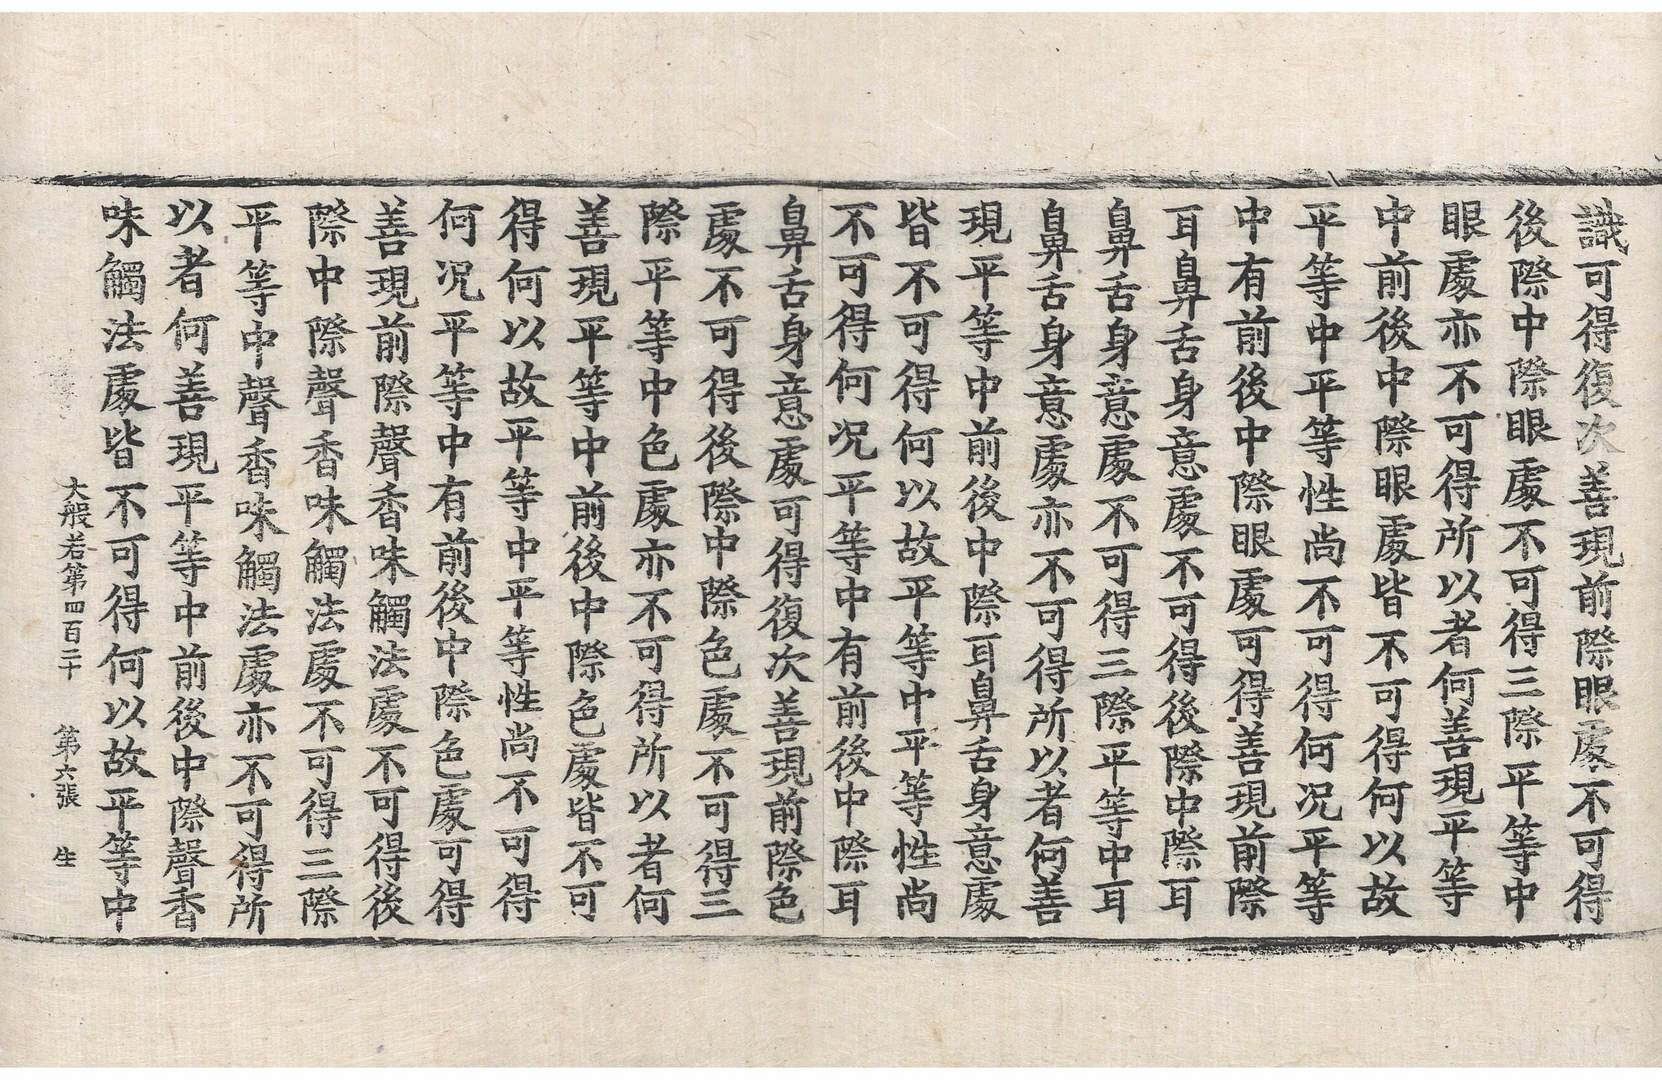 識可得復次善現前際眼處不可得
後際中際眼處不可得三際平等中
眼處亦不可得所以者何善現平等
中前後中際眼處皆不可得何以故
平等中平等性尚不可得何况平等
中有前後中際眼處可得善現前際
耳鼻舌身意處不可得後際中際耳
鼻舌身意處不可得三際平等中耳
鼻舌身意處亦不可得所以者何善
現平等中前後中際耳鼻舌身意處
皆不可得何以故平等中平等性尚
不可得何况平等中有前後中際耳
鼻舌身意處可得復次善現前際色
處不可得後際中際色處不可得三
際平等中色處亦不可得所以者何
善現平等中前後中際色處皆不可
得何以故平等中平等性尚不可得
何况平等中有前後中際色處可得
善現前際聲香味觸法處不可得後
際中際聲香味觸法處不可得三際
平等中聲香味觸法處亦不可得所
以者何善現平等中前後中際聲香
味觸法處皆不可得何以故平等中
大般若第四百二十 第六張 生